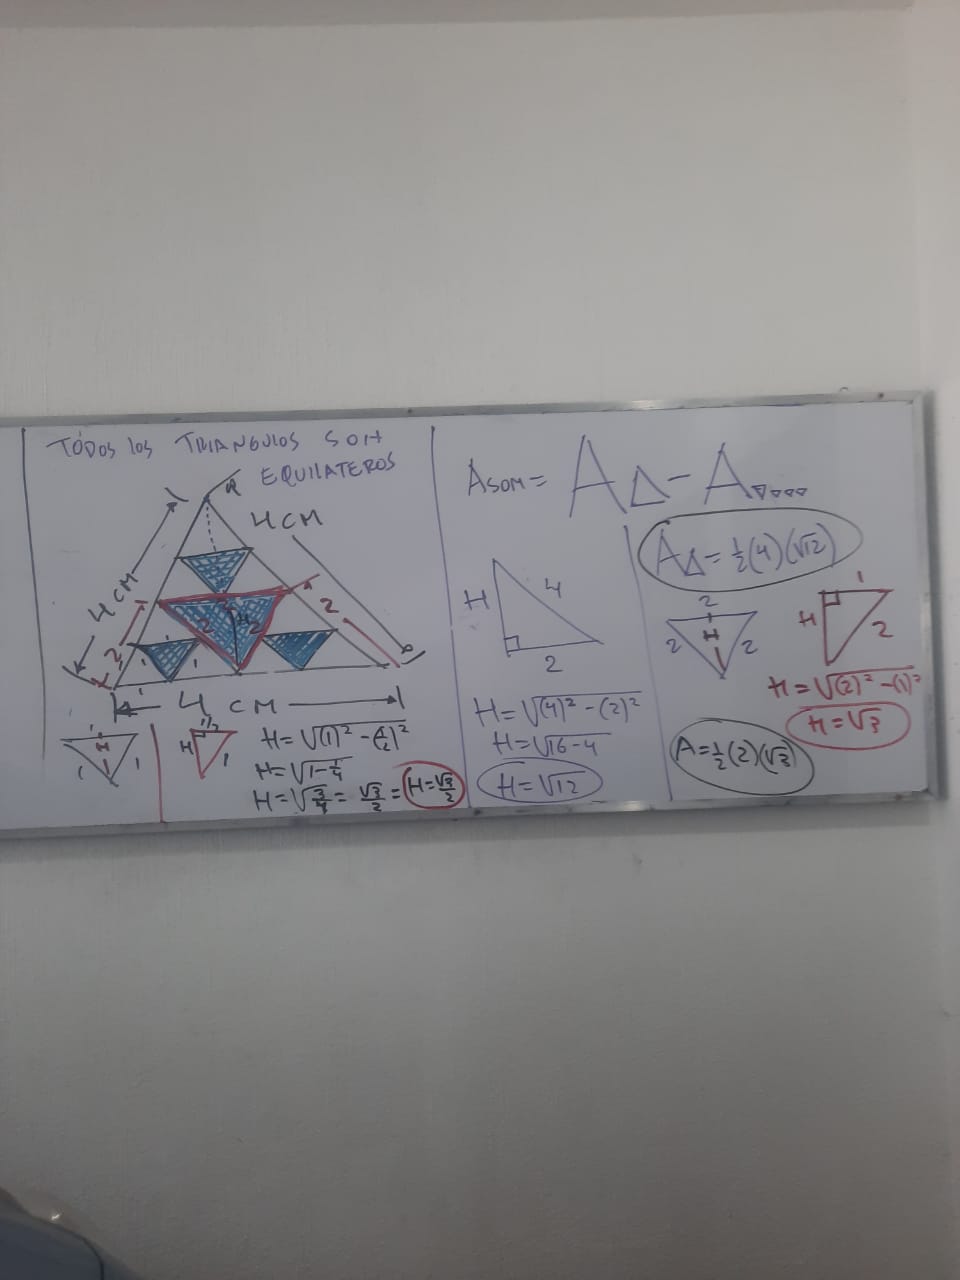 TODOS LOS TRIANGULOS SON
EQUILATEROS
4 CM
4 CM
2
2
2
2
H
1
1
1
4 CM
1
H
1
1
1/2
H
1
H=√(1)²-(1/2)²
H=√1-1/4
H=√3/4=√3/2=H=√3/2
ASOM=A△-A▽▽▽▽
H
4
2
H=√(4)²-(2)²
H=√16-4
H=√12
A△=1/2(4)(√12)
2
2
H
2
1
H
2
H=√(2)²-(1)²
H=√3
A=1/2(2)(√3)